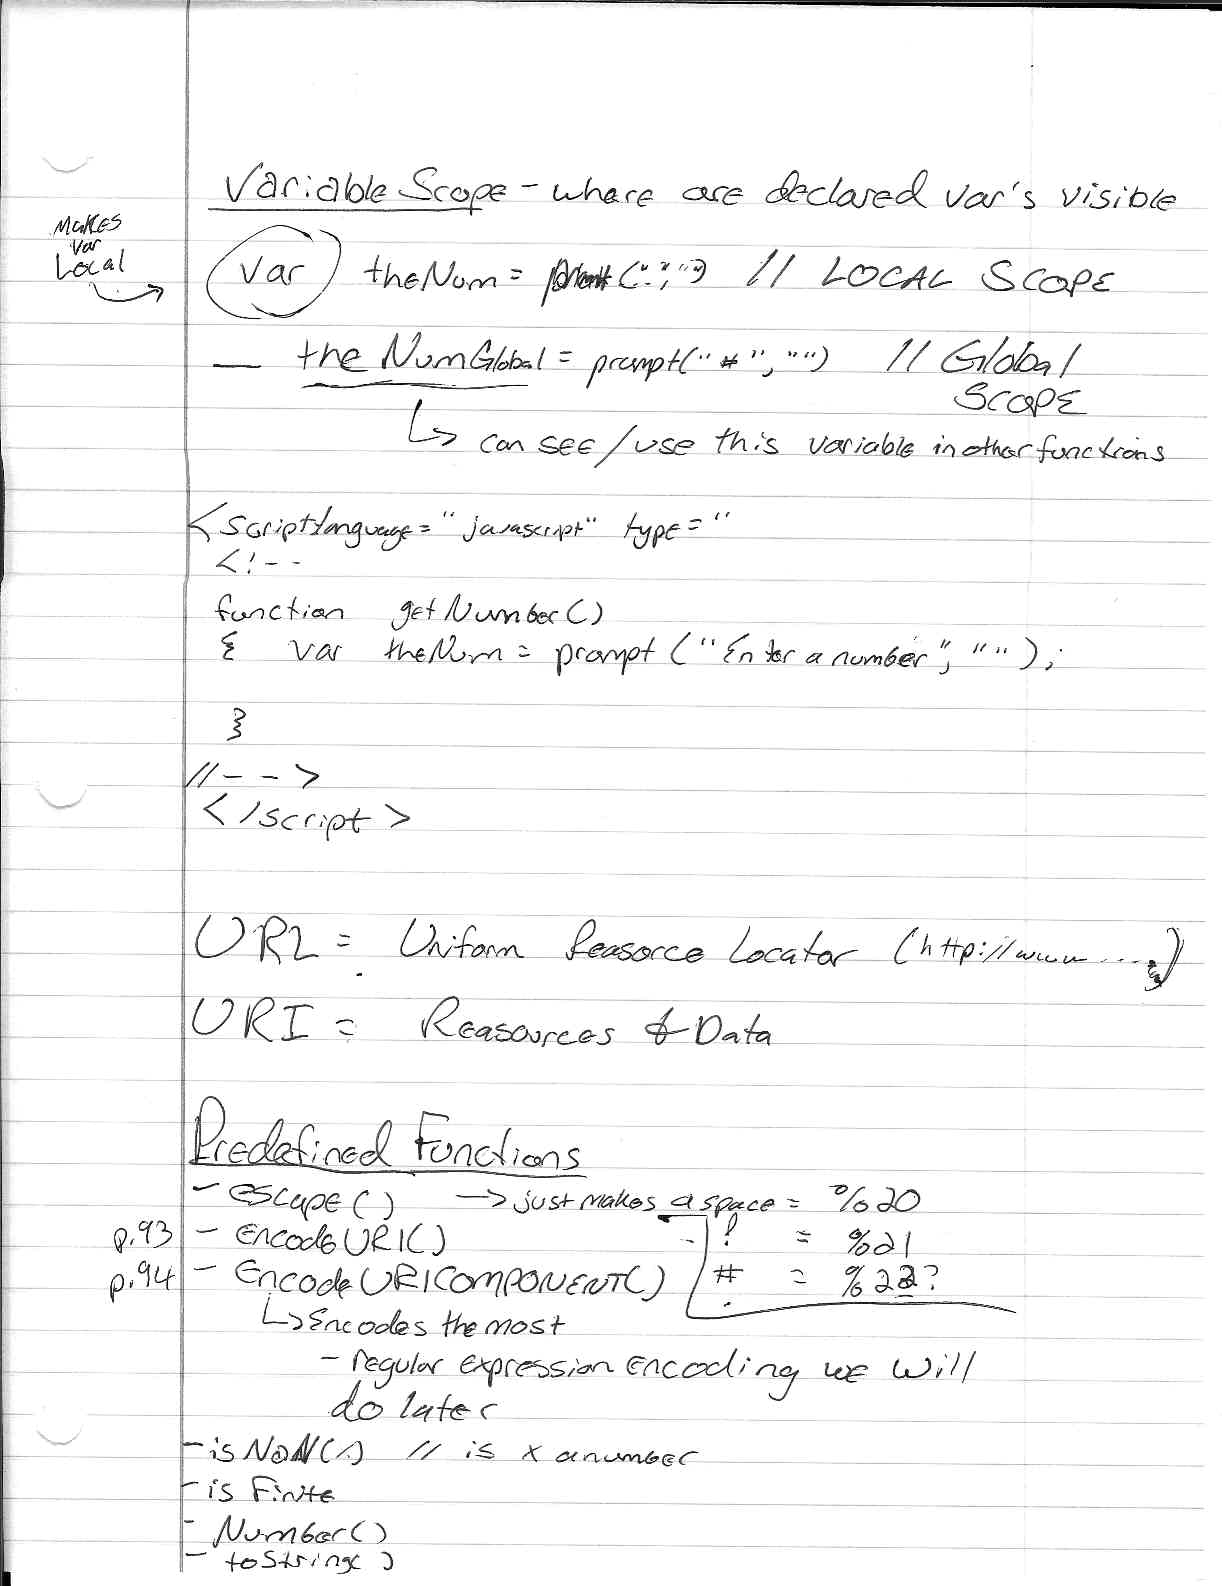 Variable Scope - where are declared var's visible
Makes
var
Local
var theNum = prompt(" ", "") // LOCAL SCOPE
— theNumGlobal = prompt("#", "") // Global
SCOPE
↳ can see/use this variable in other functions
<script language="javascript" type="
<!--
function getNumber()
{ var theNum = prompt("Enter a number", "");
}
//-->
</script>
URL = Uniform Reasorce Locator (http://www....)
URI = Reasources & Data
Predefined Functions
- escape() → just makes a space = %20
p.93 - EncodeURI() - ! = %21
p.94 - EncodeURICOMPONENT() # = %22?
↳ Encodes the most
- regular expression encoding we will
do later
- isNaN() // is x a number
- is Finite
- Number()
- toString()